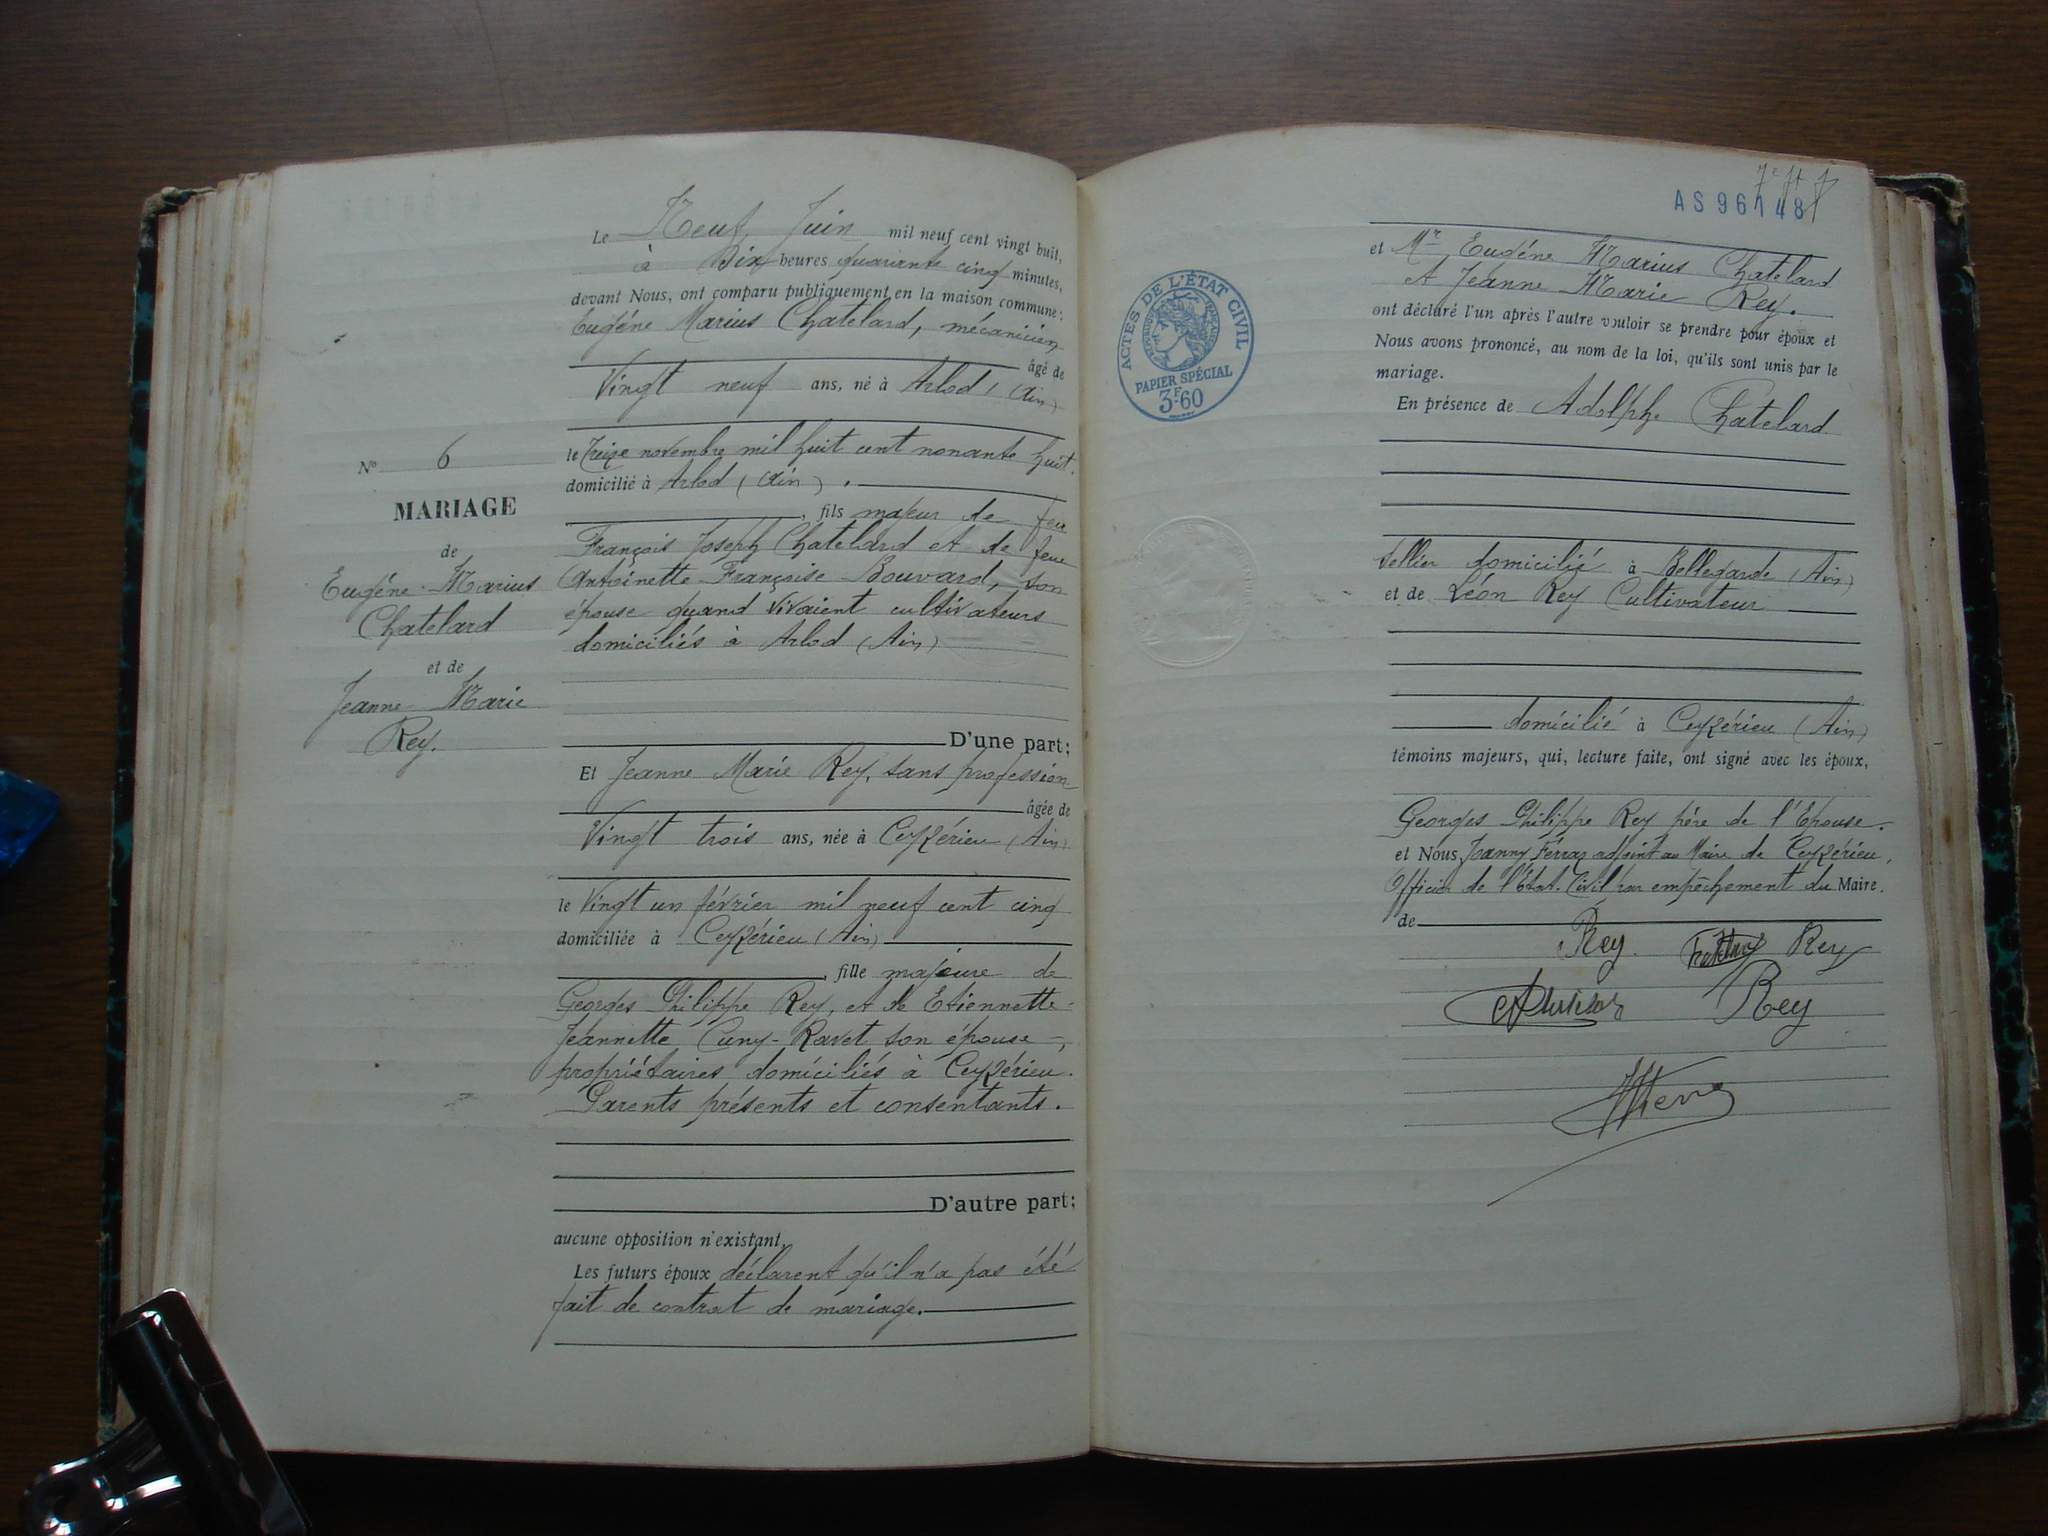 Le Neuf Juin mil neuf cent vingt huit,
à Dix heures quarante cinq minutes,
devant Nous, ont comparu publiquement en la maison commune:
Eugéne Marius Chatelard, mécanicien
âgé de
Vingt neuf ans, né à Arlod, (Ain)
le treize novembre mil huit cent nonante huit.
domicilié à Arlod (Ain).
, fils majeur de feu
François Joseph Chatelard et de feue
Antoinette Françoise Bouvard, son
épouse quand vivaient cultivateurs
domiciliés à Arlod (Ain)
D'une part;
Et Jeanne Marie Rey, sans profession
âgée de
Vingt trois ans, née à Ceyzérieu (Ain)
le Vingt un février mil neuf cent cinq
domiciliée à Ceyzérieu (Ain)
, fille majeure de
Georges Philippe Rey, et de Etiennette-
Jeannette Cuny-Ravet son épouse-,
propriétaires domiciliés à Ceyzérieu.
Parents présents et consentants.
D'autre part;
aucune opposition n'existant,
Les futurs époux déclarent qu'il n'a pas été
fait de contrat de mariage.
No 6
MARIAGE
de
Eugéne-Marius
Chatelard
et de
Jeanne-Marie
Rey.
AS96148
ACTES DE L'ÉTAT CIVIL
PAPIER SPÉCIAL
3F.60
et Mr Eugéne Marius Chatelard
et Jeanne Marie Rey.
ont déclaré l'un après l'autre vouloir se prendre pour époux et
Nous avons prononcé, au nom de la loi, qu'ils sont unis par le
mariage.
En présence de Adolphe Chatelard
sellier domicilié à Bellegarde (Ain)
et de Léon Rey Cultivateur
domicilié à Ceyzérieu (Ain)
témoins majeurs, qui, lecture faite, ont signé avec les époux,
Georges Philippe Rey père de l'Epouse.
et Nous, Joanny Férraz adjoint au Maire de Ceyzérieu,
Officier de l'état-Civil par empêchement du Maire.
de
Rey. Rey
Rey